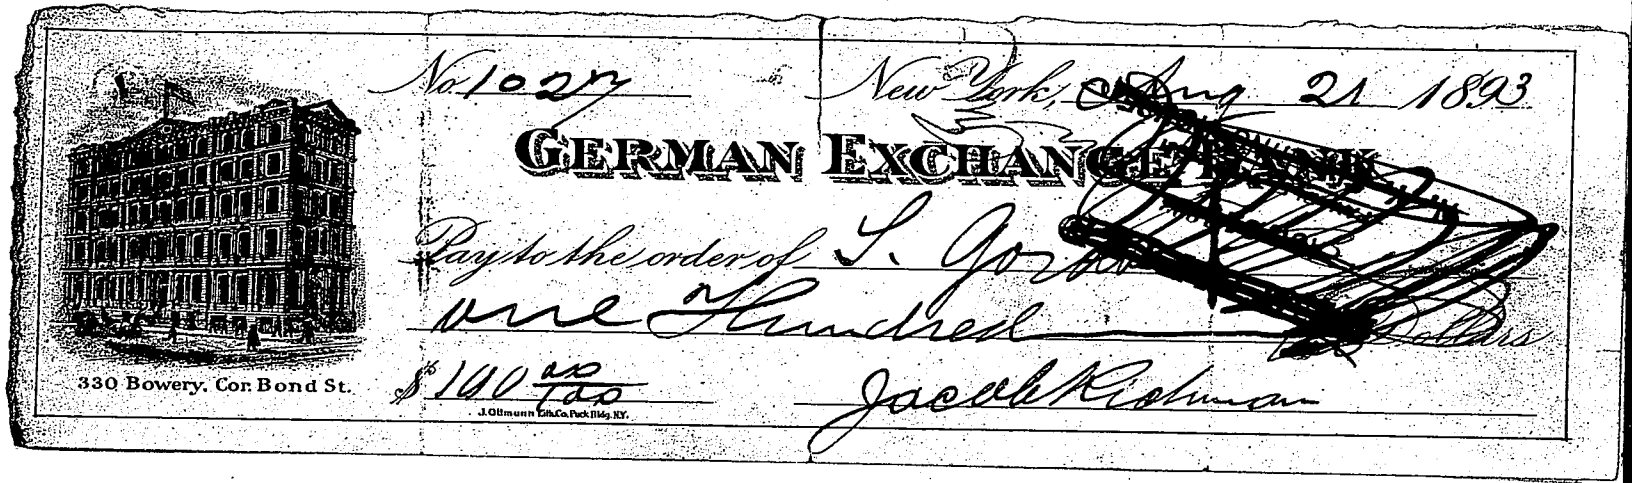 No. 1027 New York, Aug 21 1893
GERMAN EXCHANGE BANK
Pay to the order of S.
One Hundred Dollars
$100 00/100 Jacob Richman
330 Bowery. Cor. Bond St.
J. Ottmann Lith. Co. Puck Bldg. N.Y.